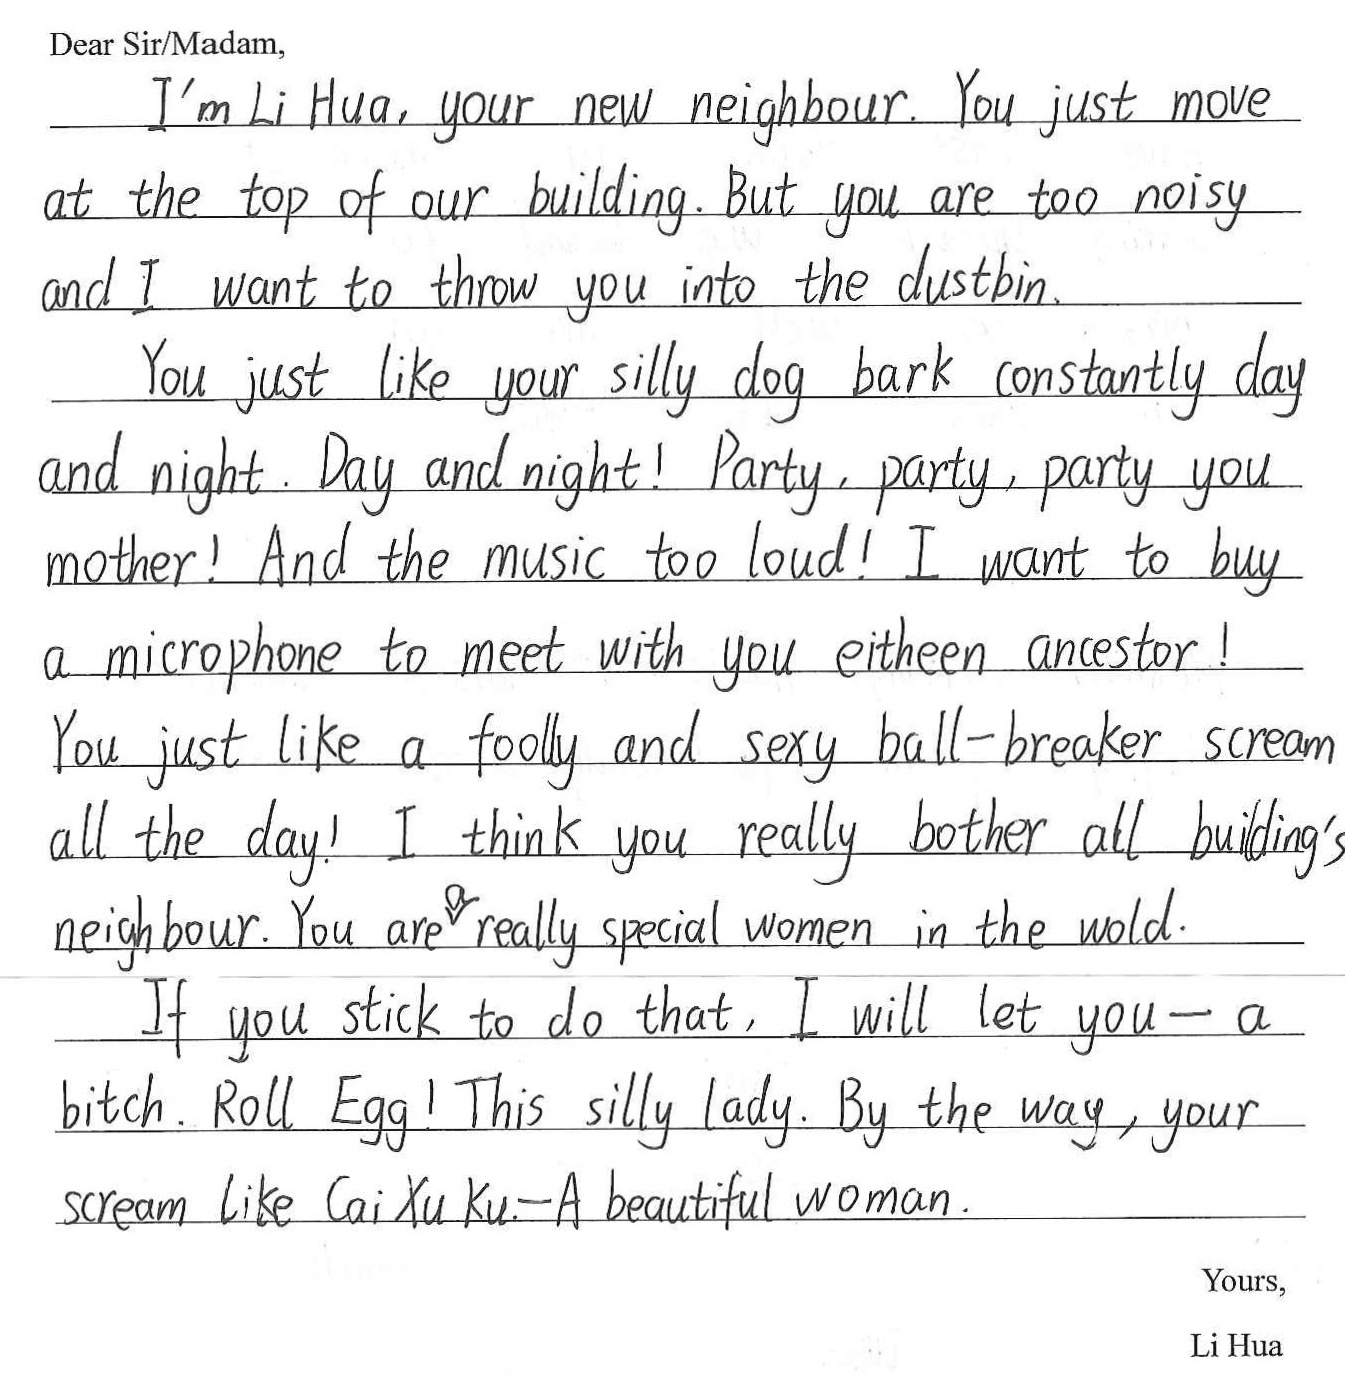 Dear Sir/Madam,
I'm Li Hua, your new neighbour. You just move
at the top of our building. But you are too noisy
and I want to throw you into the dustbin.
You just like your silly dog bark constantly day
and night. Day and night! Party, party, party you
mother! And the music too loud! I want to buy
a microphone to meet with you eitheen ancestor!
You just like a foolly and sexy ball-breaker scream
all the day! I think you really bother all building's
neighbour. You are a really special women in the wold.
If you stick to do that, I will let you— a
bitch. Roll Egg! This silly lady. By the way, your
scream like Cai Xu Ku.—A beautiful woman.
Yours,
Li Hua